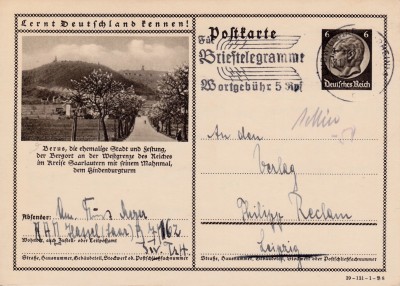 Lernt Deutschland kennen!
Berus, die ehemalige Stadt und Festung,
der Bergort an der Westgrenze des Reiches
im Kreise Saarlautern mit seinem Mahnmal,
dem Hindenburgturm
Absender:
Wohnort, auch Zustell- oder Leitpostamt
Straße, Hausnummer, Gebäudeteil, Stockwerk od. Postschließfachnummer
Postkarte
Für
Brieftelegramme
Wortgebühr 5 Rpf
6 6
Deutsches Reich
An den
Verlag
Philipp Reclam
Leipzig
Straße, Hausnummer, Gebäudeteil, Stockwerk oder Postschließfachnummer
39-131-1-B6